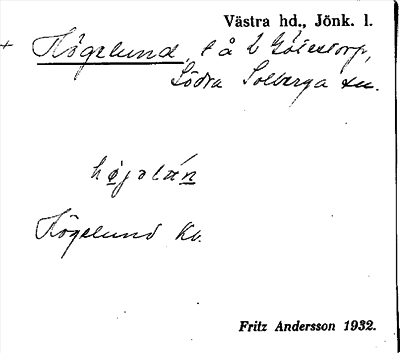 Västra hd., Jönk. l.
+ Högelund, l å b Götestorp,
Södra Solberga sn.
Högelund Kv.
Fritz Andersson 1932.